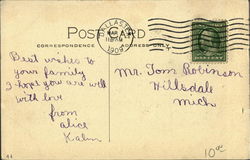 POST CARD
CORRESPONDENCE ADDRESS ONLY
MAR
11 AM
1909
Best wishes to
your family
I hope you are well
with love
from
alice
Kahn
Mr. Tom Robinson
Hillsdale
Mich
10⁰⁰